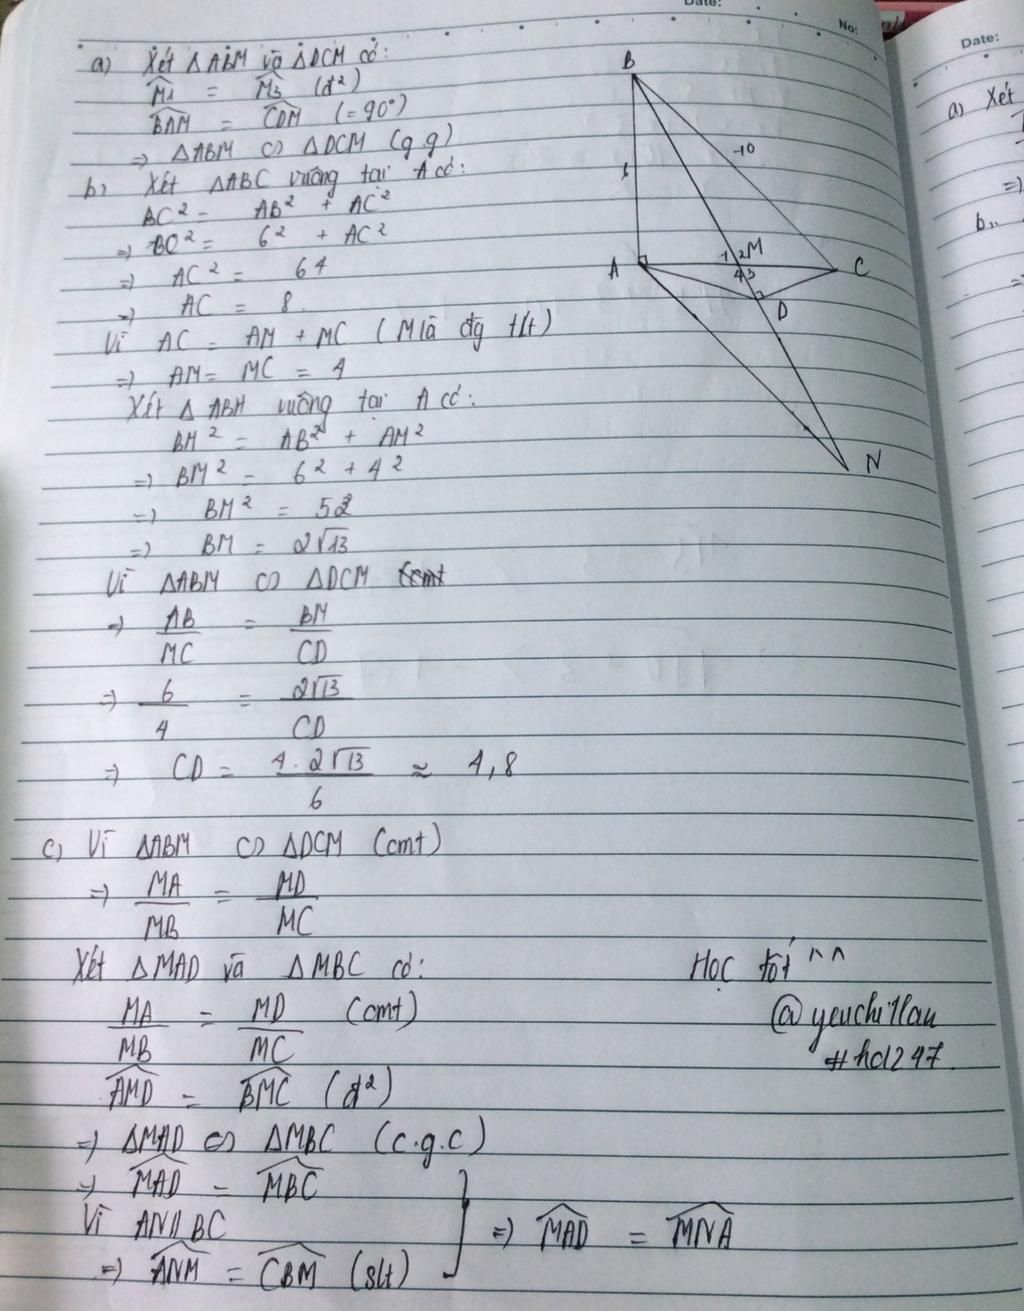 Date:
No:
a) Xét ΔABM và ΔDCM có:
M̂1 = M̂3 (đ²)
BAM = CDM (= 90°)
=> ΔABM ∽ ΔDCM (g.g)
b, Xét ΔABC vuông tại A có:
BC² = AB² + AC²
=> BC² = 6² + AC²
=> AC² = 64
=> AC = 8
Vì AC = AM + MC (M là đg t/t)
=> AM = MC = 4
Xét Δ ABM vuông tại A có:
BM² = AB² + AM²
=> BM² = 6² + 4²
=> BM² = 52
=> BM = 2√13
Vì ΔABM ∽ ΔDCM (cmt
=> AB/MC = BM/CD
=> 6/4 = 2√13/CD
=> CD = 4.2√13/6 ≈ 4,8
c, Vì ΔABM ∽ ΔDCM (cmt)
=> MA/MB = MD/MC
Xét ΔMAD và ΔMBC có:
MA/MB = MD/MC (cmt)
AMD = BMC (đ²)
=> ΔMAD ∽ ΔMBC (c.g.c)
=> MAD = MBC
Vì AN//BC
=> ANM = CBM (slt)
=> MAD = MNA
Học tốt ^^
@yeuchillau
#hd247
B
10
A
1 2 M
4 3
C
D
N
Date:
a) Xét
=>
b,